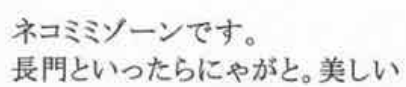 ネコミミゾーンです。
長門といったらにゃがと。美しい